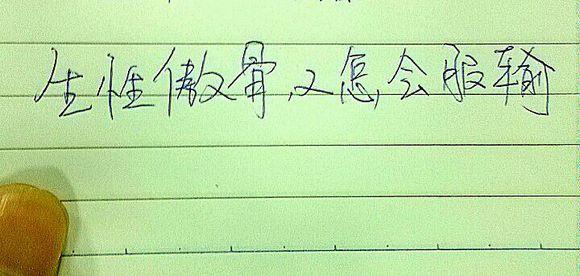 生性傲骨,又怎会服输